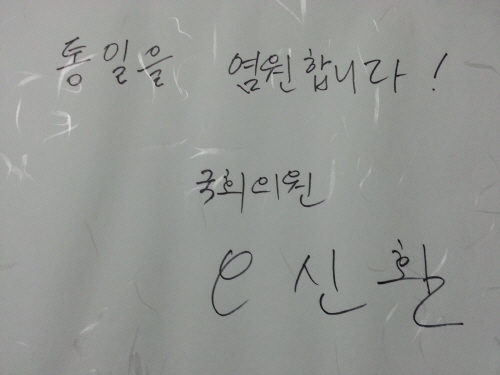 통일을 염원합니다!
국회의원
오신환